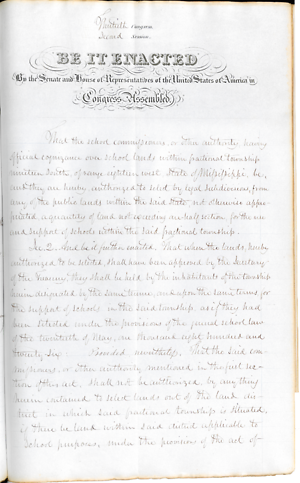 Thirtieth Congress
Second Session
BE IT ENACTED
By the Senate and House of Representatives of the United States of America in
Congress Assembled
That the school commissioners or other authority, having
official cognizance over school lands within fractional township
nineteen South of range eighteen west State of Mississippi, be,
and they are hereby authorized to select by legal subdivisions, from
any of the public lands within the said State not otherwise appro-
priated a quantity of land not exceeding one half section for the use
and support of schools within the said fractional township.
Sec. 2. And be it further enacted, That when the lands, hereby
authorized to be selected, shall have been approved by the Secretary
of the Treasury, they shall be held by the inhabitants of the township
herein designated by the same tenure and upon the same terms, for
the support of schools in the said township as if they had
been selected under the provisions of the general school law
of the twentieth of May, one thousand eight hundred and
twenty six: Provided, nevertheless, That the said com-
missioners, or other authority mentioned in the first sec-
tion of this act, shall not be authorized, by any thing
herein contained to select lands out of the land dis-
trict in which said fractional township is situated,
if there be land within said district applicable to
school purposes, under the provisions of the act of